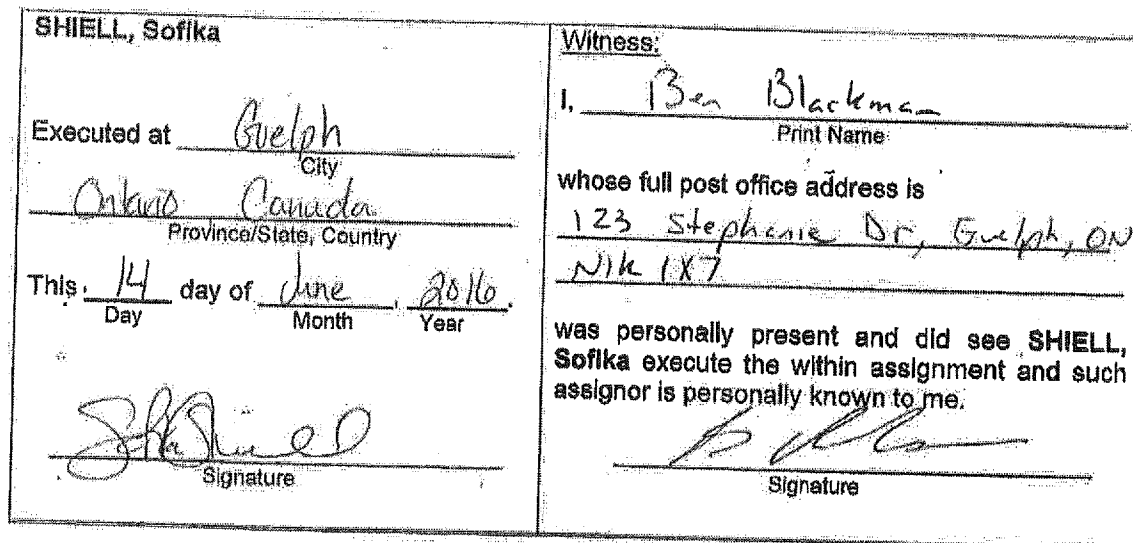 SHIELL, Sofika
Executed at Guelph
City
Ontario Canada
Province/State, Country
This 14 day of June, 2016.
Day Month Year
Signature
Witness:
I, Ben Blackman
Print Name
whose full post office address is
123 Stephanie Dr, Guelph, ON
N1K 1X7
was personally present and did see SHIELL,
Sofika execute the within assignment and such
assignor is personally known to me.
Signature